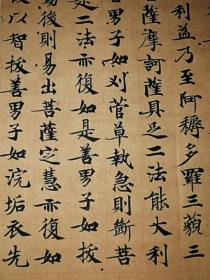 利益乃至阿耨多羅三藐三
薩摩訶薩具足二法能大利
善男子如刈菅草執急則斷菩
是二法亦復如是善男子如拔
後則易出菩薩定慧亦復如
以智拔善男子如浣垢衣先